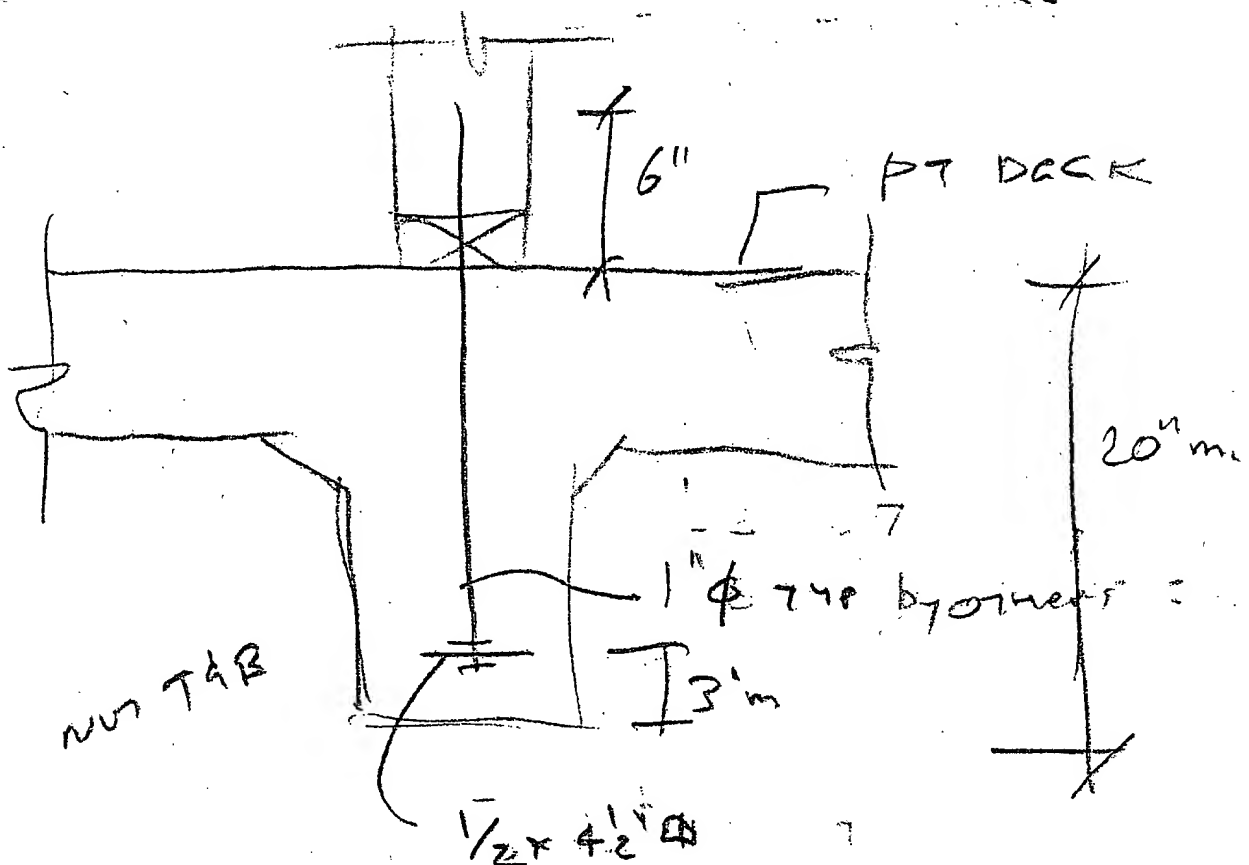 6"
PT DECK
20" m.
1" ϕ TYP by others
3" m
NUT T&B
1/2 x 4 1/2"